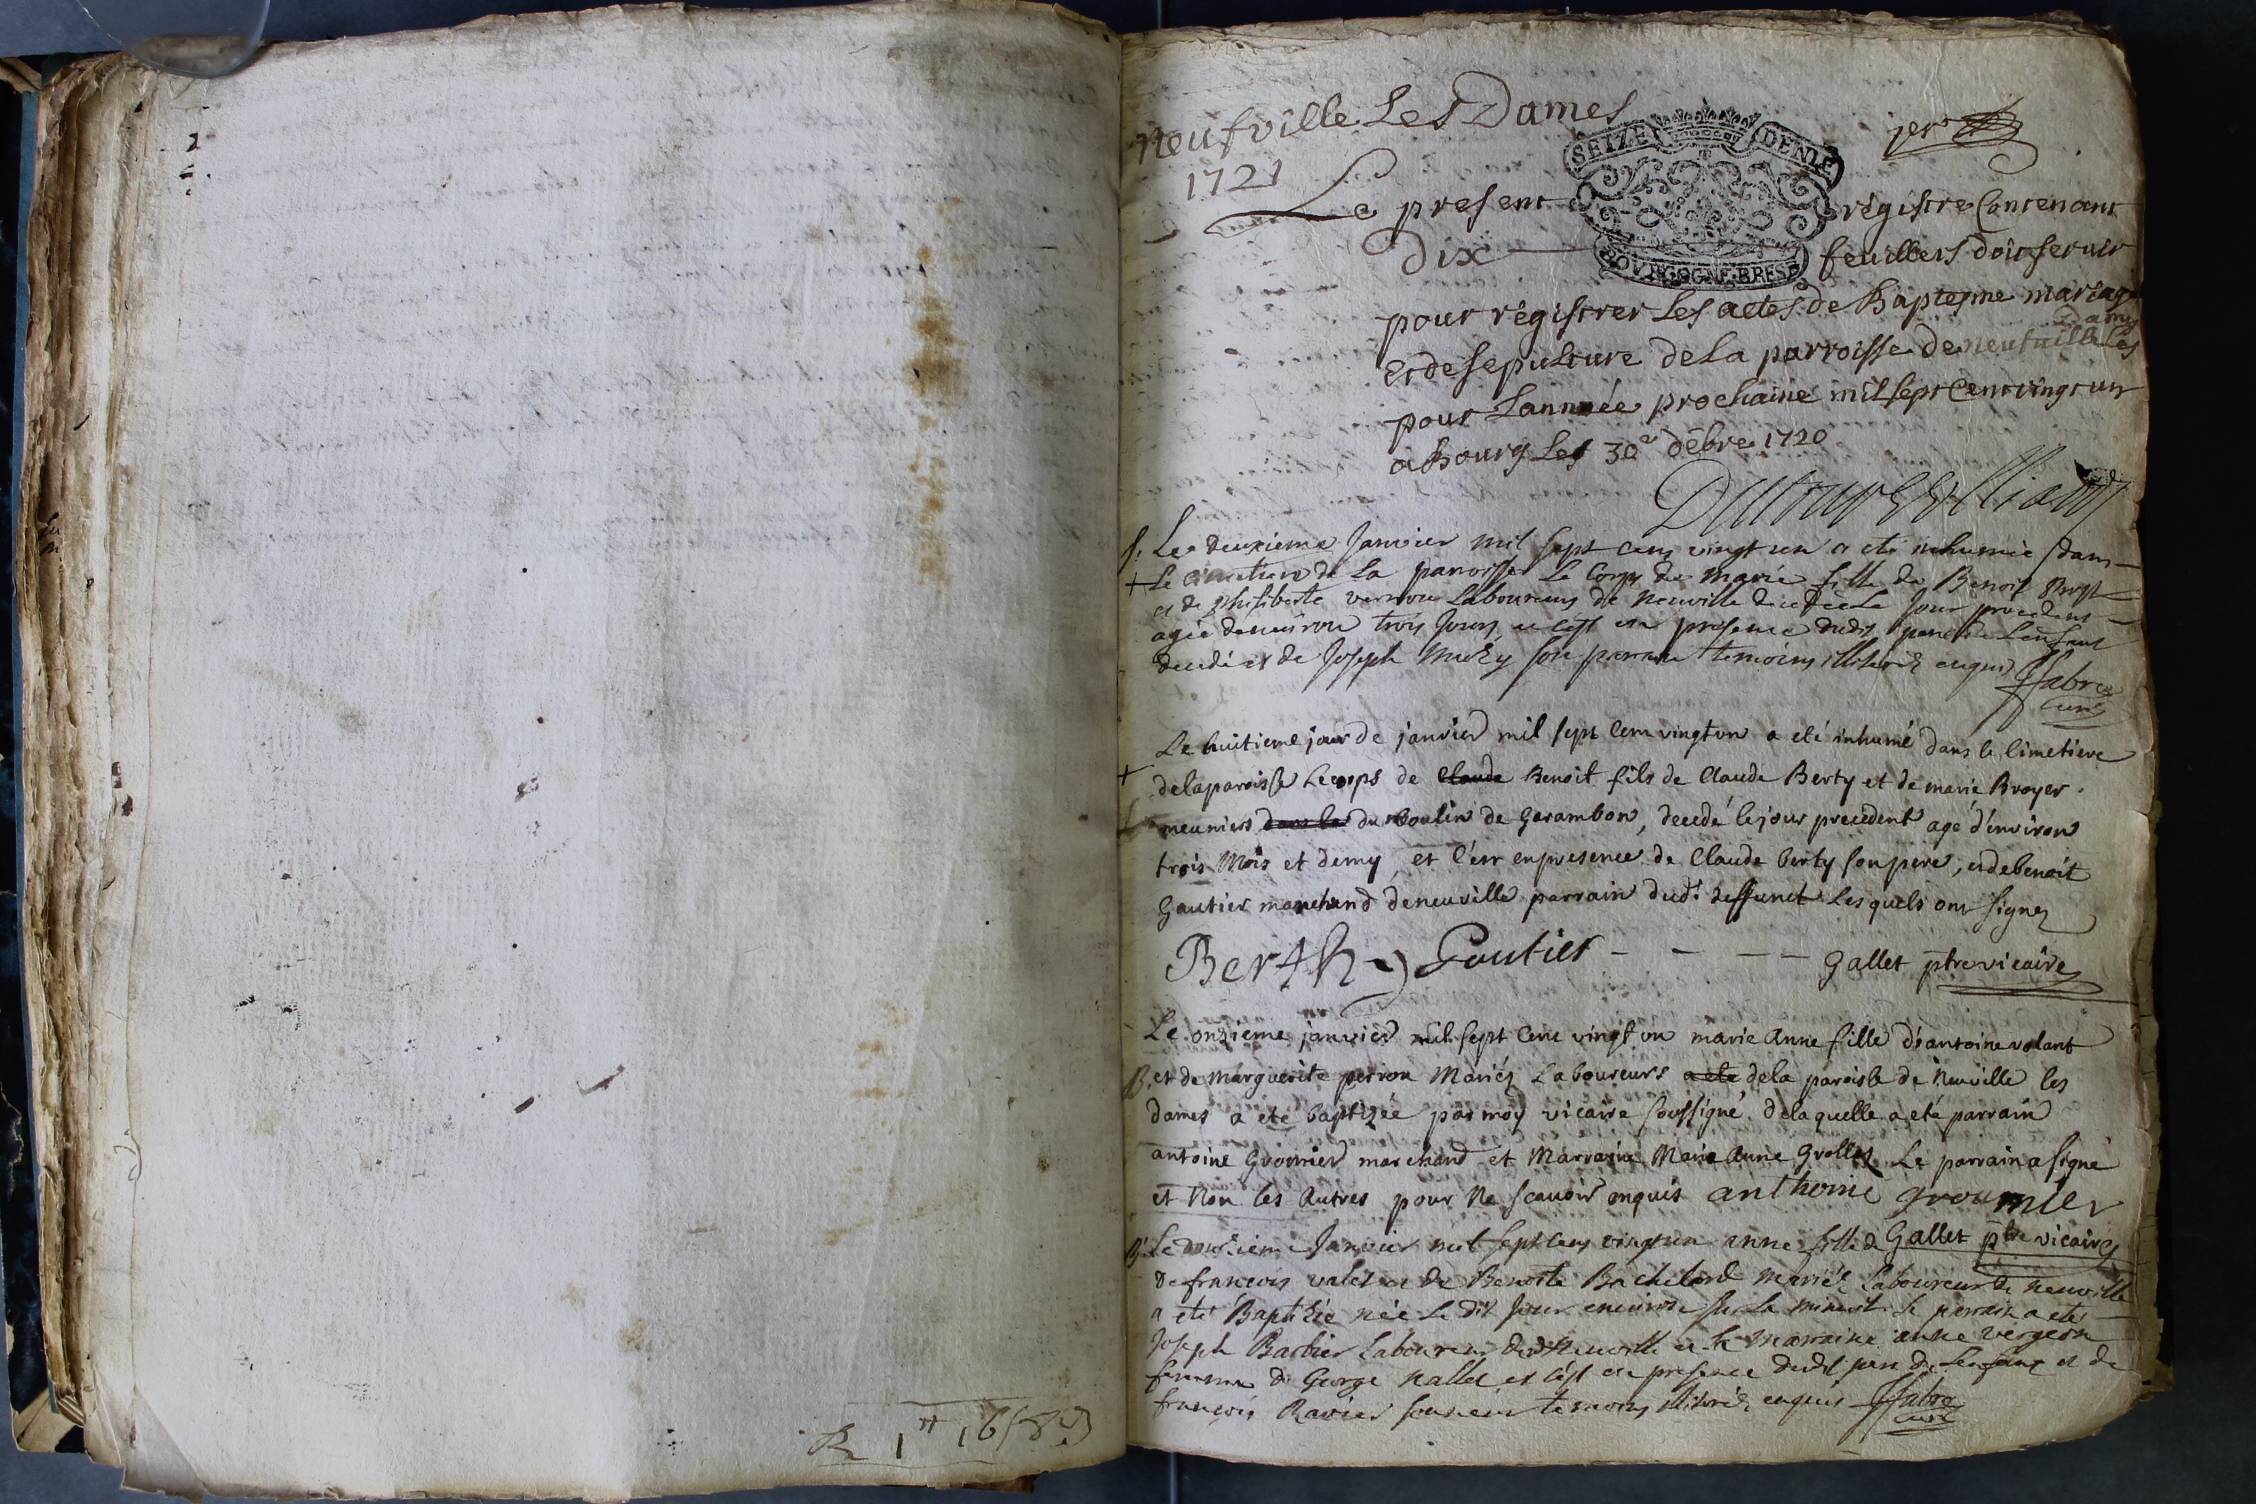 R 1# 16s 8d
neufville Les Dames
1721
jer
SEIZE DENIE
BOVRGOGNE BRESE
Le present régistre Contenant
dix feuillets doit servir
pour régistrer Les actes de Baptesme mariage
Et de sepulture de La parroisse de neufville Les
Dames
pour Lannnée prochaine mil sept Cent vingt un
a Bourg Les 30e débre 1720
s. Le deuxieme Janvier mil sept cens vingt un a eté inhumée dans
+ Le cimetiere de La paroisse Le Corps de Marie fille de Benoit
et de philiberte Laboureurs de neuville decedée Le Jour precedent
agée denviron trois Jours et cest en presence dudit pere de Lenfant
decedé et de Joseph son parrain temoins illiterés enquis
ffabre
curé
Le huitieme jour de janvier mil sept Cent vingt un a eté inhumé dans le Cimetiere
+ de la paroisse Le corps de Claude Benoit fils de Claude Berty et de marie Broyer
meuniers dans le du moulin de Garambon, decedé le jour precedent agé d'environ
trois Mois et demy, et C'est en presence de Claude berty son pere, et de benoit
Gautier marchand de neuville parrain dud.t deffunct Lesquels ont signez
Berthy Goutier - - - - Gallet ptre vicaire
Le onzieme janvier mil sept Cent vingt un marie Anne fille d'antoine volant
B. et de Marguerite perron Mariéz Laboureurs a eté de la paroisse de Neuville les
dames a eté baptizée par moy vicaire soussigné. de laquelle a eté parrain
antoine Groumier marchand et Marraine Marie Anne Grollez Le parrain a signé
et Non les Autres pour Ne scavoir enquis anthoine groumier
Gallet ptre vicaire
B. Le douzieme Janvier mil sept cens vingt un anne fille
de francois valet et de Benoite Bachelard mariéz Laboureurs de neuville
a eté Baptizée née Le dit Jour environ sur La minuit Le parrain a eté
Joseph Barbier Laboureur dud Neuville et La marraine anne vergeon
femme de George Nallet et c'est en presence dudit pere de Lenfant et de
françois Ravier temoins illiterés enquis ffabre
curé